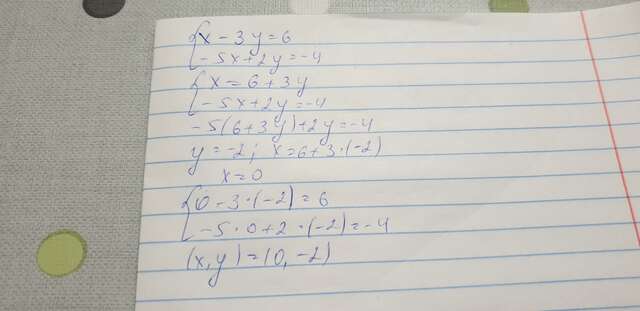 {x - 3y = 6
{-5x + 2y = -4
{x = 6 + 3y
{-5x + 2y = -4
-5(6 + 3y) + 2y = -4
y = -2; x = 6 + 3 · (-2)
x = 0
{0 - 3 · (-2) = 6
{-5 · 0 + 2 · (-2) = -4
(x, y) = (0, -2)